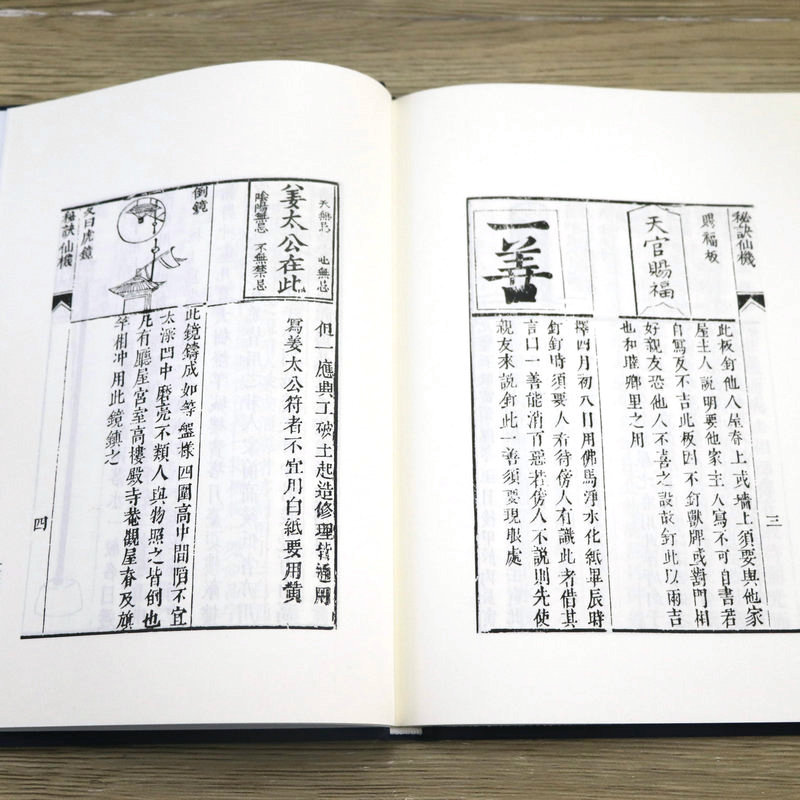 秘訣仙機
三
福板
天官賜福
此板釘他人屋脊上或墻上須要與他家
屋主人說明要他家主人寫不可自書若
自寫反不吉此板因不釘獸牌或對門相
好親友恐他人不喜之設故釘此以兩吉
也和睦鄉里之用
一善
擇四月初八日用佛馬淨水化紙畢辰時
釘釘時須要人看待傍人有識此者借其
言曰一善能消百惡若傍人不說則先使
親友來說釘此一善須要現眼處
天無忌
地無忌
姜太公在此
陰陽無忌
無禁忌
但一應興工破土起造修理皆通用
寫姜太公符者不宜用白紙要用黃
倒鏡
此鏡鑄成如等盤樣四圍高中間陷不宜
太深凹中磨亮不類人與物照之皆倒也
凡有廳屋宮室高樓殿寺菴觀屋脊及旗
竿相冲用此鏡鎮之
又曰虎鏡
秘訣仙機
四